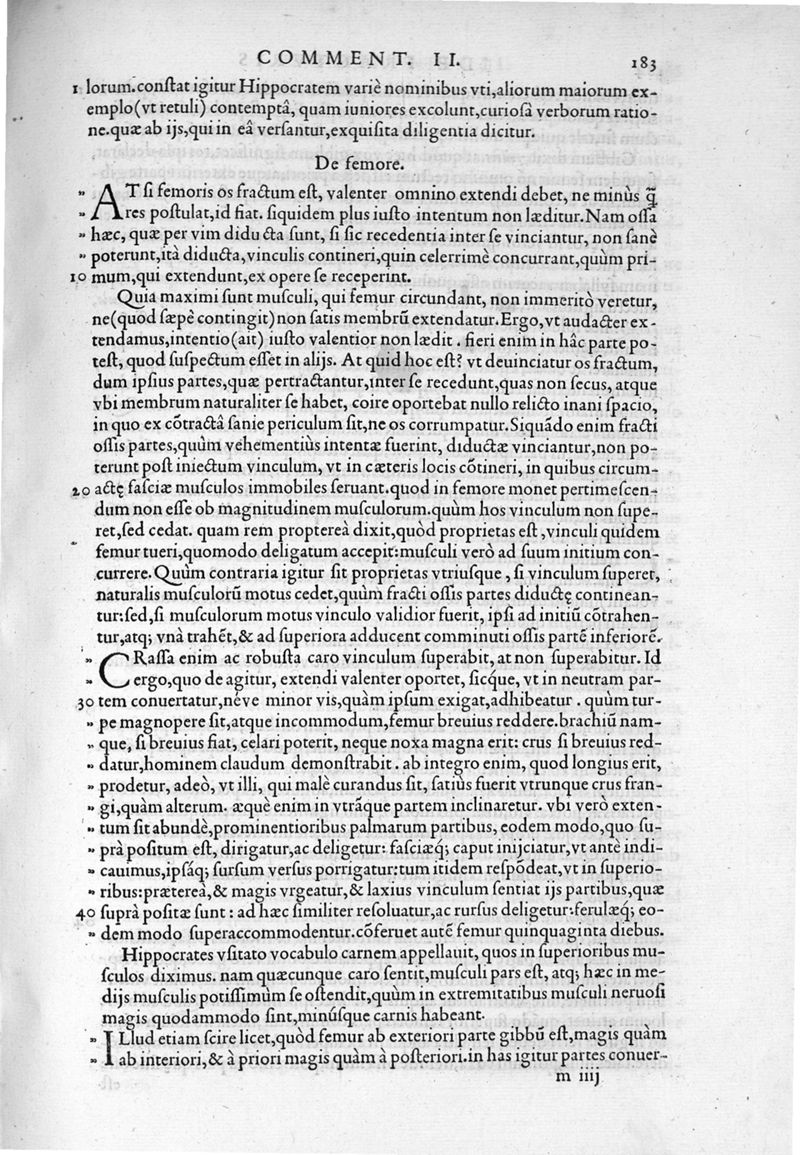 COMMENT. II. 183
1 lorum.conſtat igitur Hippocratem variè nominibus vti,aliorum maiorum ex-
emplo(vt retuli) contemptâ, quam iuniores excolunt,curioſâ verborum ratio-
ne.quæ ab ijs,qui in eâ verſantur,exquiſita diligentia dicitur.
De femore.
" AT ſi femoris os fractum eſt, valenter omnino extendi debet, ne minùs q̃
" res poſtulat,id fiat. ſiquidem plus iuſto intentum non læditur. Nam oſſa
" hæc, quæ per vim diducta ſunt, ſi ſic recedentia inter ſe vinciantur, non ſanè
" poterunt,ità diducta,vinculis contineri,quin celerrimè concurrant,quùm pri-
10 mum,qui extendunt,ex opere ſe receperint.
Quia maximi ſunt muſculi, qui femur circundant, non immeritò veretur,
ne(quod ſæpè contingit)non ſatis membrũ extendatur.Ergo,vt audacter ex-
tendamus,intentio(ait) iuſto valentior non lædit. fieri enim in hâc parte po-
teſt, quod ſuſpectum eſſet in alijs. At quid hoc eſt? vt deuinciatur os fractum,
dum ipſius partes,quæ pertractantur,inter ſe recedunt,quas non ſecus, atque
vbi membrum naturaliter ſe habet, coire oportebat nullo relicto inani ſpacio,
in quo ex cõtractâ ſanie periculum ſit,ne os corrumpatur.Siquãdo enim fracti
oſſis partes,quùm vehementiùs intentæ fuerint, diductæ vinciantur,non po-
terunt poſt iniectum vinculum, vt in cæteris locis cõtineri, in quibus circum-
20 actę faſciæ muſculos immobiles ſeruant.quod in femore monet pertimeſcen-
dum non eſſe ob magnitudinem muſculorum.quùm hos vinculum non ſupe-
ret,ſed cedat. quam rem proptereà dixit,quòd proprietas eſt,vinculi quidem
femur tueri,quomodo deligatum accepit:muſculi verò ad ſuum initium con-
currere.Quùm contraria igitur ſit proprietas vtriuſque, ſi vinculum ſuperet,
naturalis muſculorũ motus cedet,quùm fracti oſſis partes diductę continean-
tur:ſed,ſi muſculorum motus vinculo validior fuerit, ipſi ad initiũ cõtrahen-
tur,atq; vnà trahẽt,& ad ſuperiora adducent comminuti oſſis partẽ inferiorẽ.
" CRaſſa enim ac robuſta caro vinculum ſuperabit, at non ſuperabitur. Id
" ergo,quo de agitur, extendi valenter oportet, ſicq́ue, vt in neutram par-
30 tem conuertatur,néve minor vis,quàm ipſum exigat,adhibeatur. quùm tur-
" pe magnopere ſit,atque incommodum,femur breuius reddere.brachiũ nam-
" que, ſi breuius fiat, celari poterit, neque noxa magna erit: crus ſi breuius red-
" datur,hominem claudum demonſtrabit. ab integro enim, quod longius erit,
" prodetur, adeò, vt illi, qui malè curandus ſit, ſatiùs fuerit vtrunque crus fran-
" gi,quàm alterum. æquè enim in vtrãque partem inclinaretur. vbi verò exten-
" tum ſit abundè,prominentioribus palmarum partibus, eodem modo,quo ſu-
" prà poſitum eſt, dirigatur,ac deligetur: faſciæq́; caput inijciatur,vt antè indi-
" cauimus,ipſáq; ſurſum verſus porrigatur:tum itidem reſpõdeat,vt in ſuperio-
" ribus:prætereà,& magis vrgeatur,& laxius vinculum ſentiat ijs partibus,quæ
40 ſuprà poſitæ ſunt: ad hæc ſimiliter reſoluatur,ac rurſus deligetur:ferulæq́; eo-
" dem modo ſuperaccommodentur.cõferuet autẽ femur quinquaginta diebus.
Hippocrates vſitato vocabulo carnem appellauit, quos in ſuperioribus mu-
ſculos diximus. nam quæcunque caro ſentit,muſculi pars eſt, atq; hæc in me-
dijs muſculis potiſſimùm ſe oſtendit,quùm in extremitatibus muſculi neruoſi
magis quodammodo ſint,minúſque carnis habeant.
" ILlud etiam ſcire licet,quòd femur ab exteriori parte gibbũ eſt,magis quàm
" ab interiori,& à priori magis quàm à poſteriori.in has igitur partes conuer-
m iiij